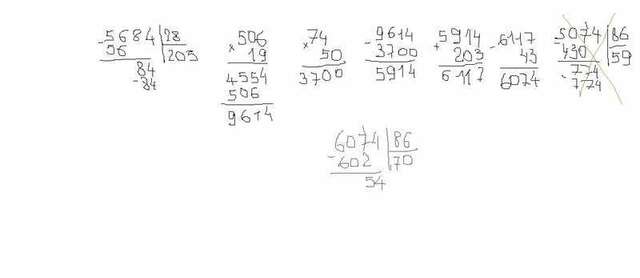 -5684 |28
56 |203
84
-84
×506
19
4554
506
9614
×74
50
3700
-9614
3700
5914
+5914
203
6117
-6117
43
6074
-5074 |86
430 |59
-774
774
-6074 |86
602 |70
54